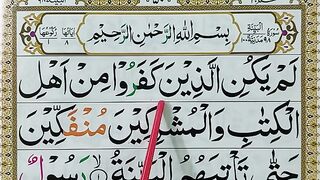 بِسْمِ اللّٰهِ الرَّحْمٰنِ الرَّحِيْمِ
لَمْ يَكُنِ الَّذِيْنَ كَفَرُوْا مِنْ اَهْلِ
الْكِتٰبِ وَالْمُشْرِكِيْنَ مُنْفَكِّيْنَ
حَتّٰى تَاْتِيَهُمُ الْبَيِّنَةُ ۙ ١ رَسُوْلٌ